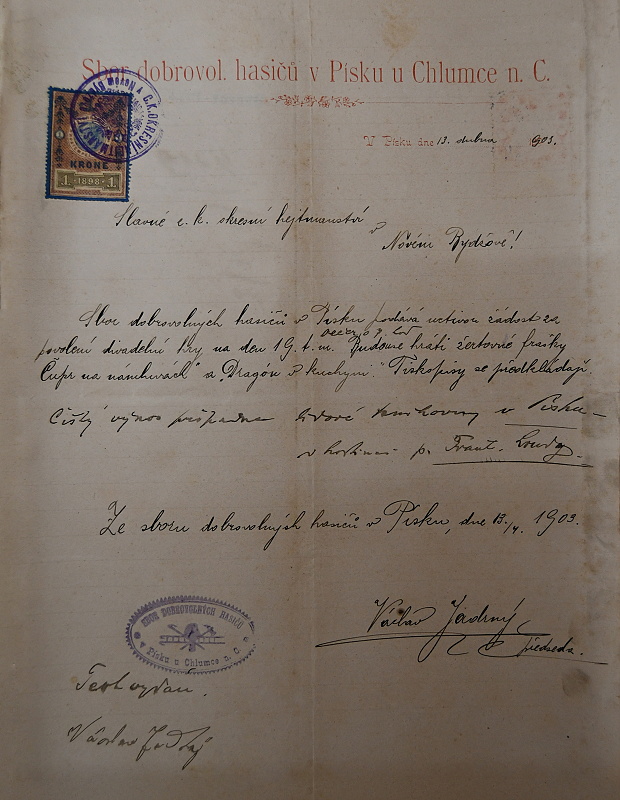 Sbor dobrovol. hasičů v Písku u Chlumce n. C.
C.K. OKRESNÍ
KRONE
1 1898 1
V Písku dne 13. dubna 1903.
Slavné c. k. okresní hejtmanství
v
Novém Bydžově!
Sbor dobrovolných hasičů v Písku podává uctivou žádost za
povolení divadelní hry na den 19. t. m. večer o 7. hod. Budou se hráti žertovné frašky
Cupr na námluvách" a „Dragoun v kuchyni". Tiskopisy se předkládají.
Čistý výnos připadne lidové knihovny v Písku
v hostinci p. Frant.
Ze sboru dobrovolných hasičů v Písku, dne 13./4. 1903.
Václav Jadrný
předseda.
SBOR DOBROVOLNÝCH HASIČŮ
v Písku u Chlumce n. C.
Text vydán.
Václav